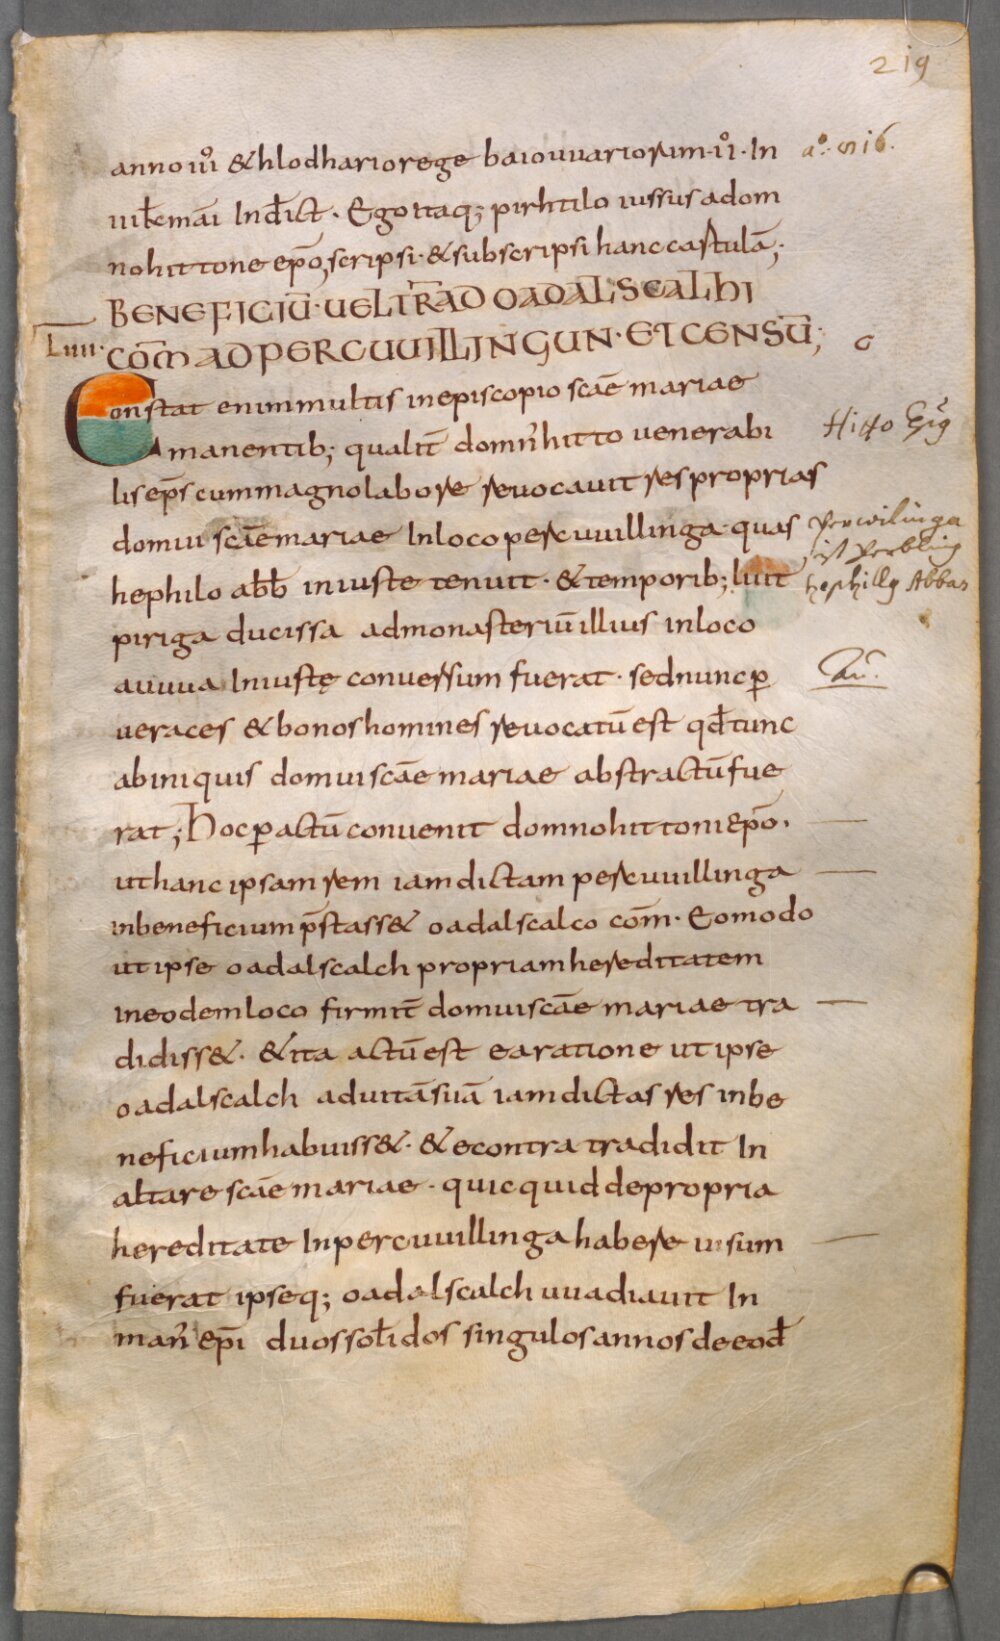 219
anno iiii̊ & hlodhario rege baiouuariorum · ii̊ · In
aº. 816.
uiłemāi Ind̄ict · Ego itaq; pirhtilo iussus a dom
no hittone ep̄o, scripsi · & subscripsi hanc cartulā;
BENEFICIŪ · UEL TR̄AD OADALSCALHI
Luii · COM̄ AD PERCUUILLINGUN · ET CENSŪ;
Constat enim multis in episcopio sc̄ae mariae
manentib; qualit̄ domn̄ hitto venerabi
Hitto
lis ep̄s cum magno labore revocavit res proprias
domui sc̄ae mariae In loco percuuillinga · quas
Perwilinga
hephilo ab̄b iniuste tenuit · & temporib; liut
ist Perbling
hephilly Abbas
piriga ducissa ad monasteriū illius in loco
auuua Iniustę conversum fuerat · sed nunc ꝑ
ueraces & bonos homines revocatū est qd̄ tunc
ab iniquis domui sc̄ae mariae abstractū fue
rat; Hoc ꝑactū convenit domno hittoni ep̄o.
ut hanc ipsam rem iamdictam percuuillinga
in beneficium p̄stass& oadalscalco com̄ · Eo modo
ut ipse oadalscalch propriam hereditatem
in eodem loco firmit̄ domui sc̄ae mariae tra
didiss& · & ita actū est ea ratione ut ipse
oadalscalch ad uitā suā iamdictas res in be
neficium habuiss& · & econtra tradidit In
altare sc̄ae mariae · quicquid de propria
hereditate In percuuillinga habere uisum
fuerat ipseq; oadalscalch uuadiauit In
man̄ ep̄i duos sol̄idos singulos annos de eod̄